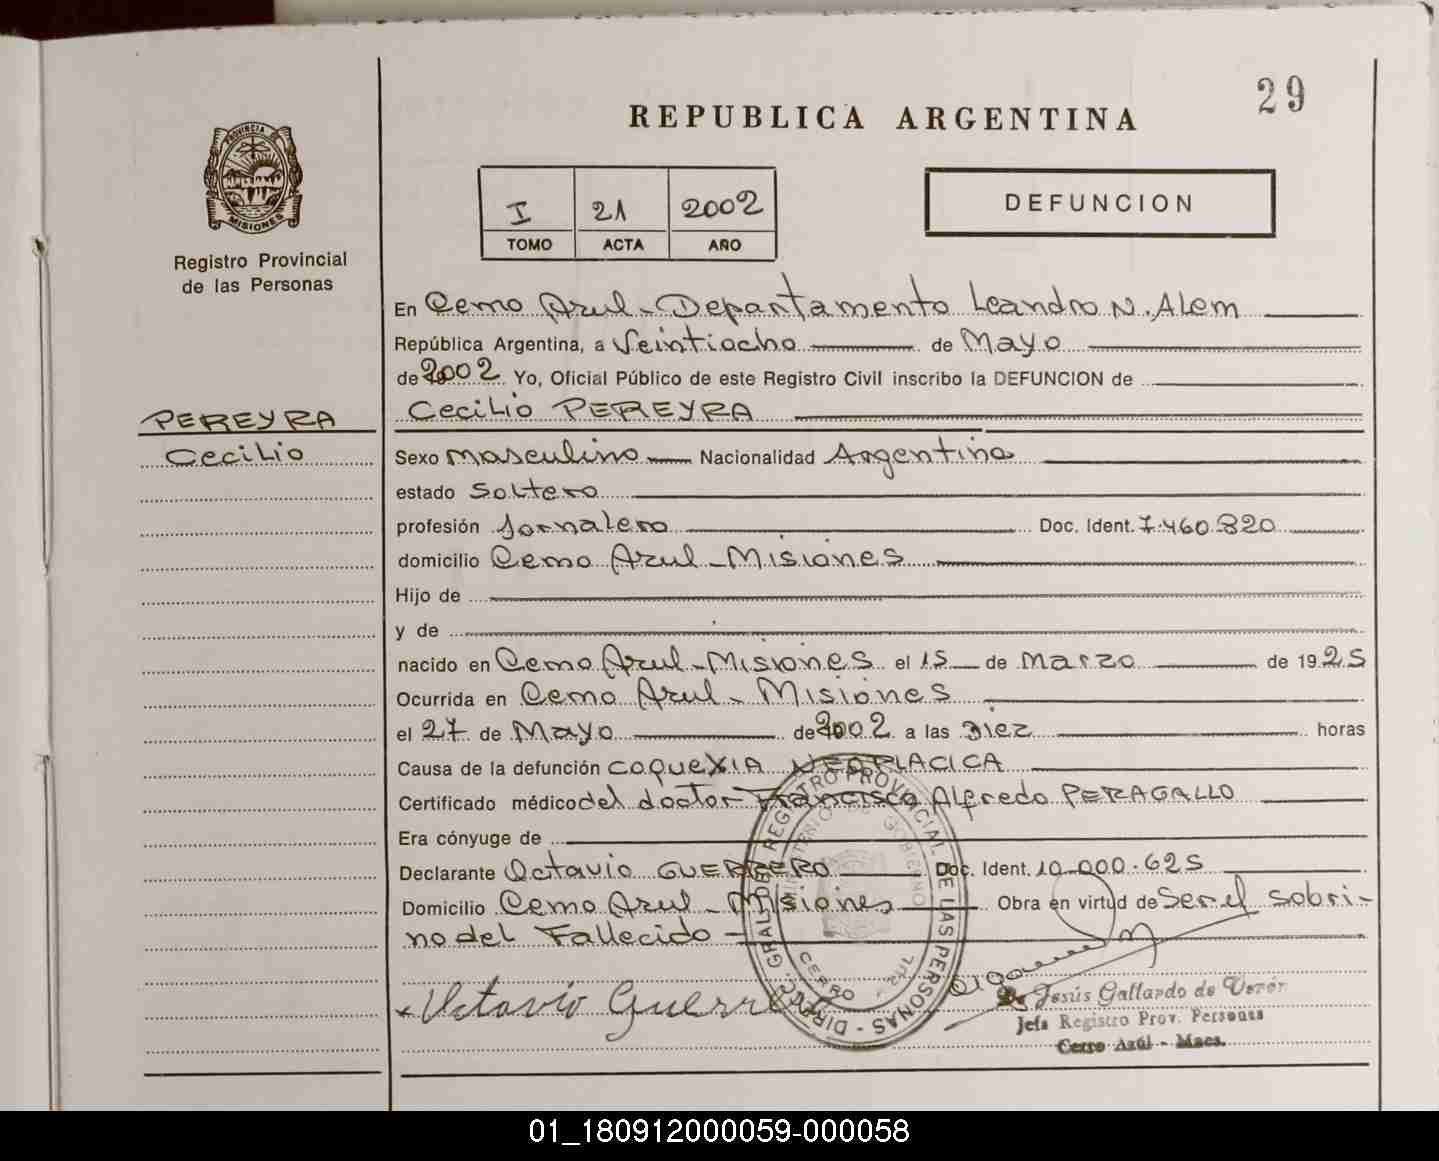 29
REPUBLICA ARGENTINA
PROVINCIA DE
MISIONES
Registro Provincial
de las Personas
I 21 2002
TOMO ACTA AÑO
DEFUNCION
En Cerro Azul - Departamento Leandro N. Alem
República Argentina, a Veintiocho de Mayo
de 2002 Yo, Oficial Público de este Registro Civil inscribo la DEFUNCION de
Cecilio PEREYRA
PEREYRA
Cecilio
Sexo Masculino Nacionalidad Argentina
estado Soltero
profesión Jornalero Doc. Ident. 7.460.820
domicilio Cerro Azul - Misiones
Hijo de
y de
nacido en Cerro Azul - Misiones el 15 de Marzo de 1925
Ocurrida en Cerro Azul - Misiones
el 27 de Mayo de 2002 a las Diez horas
Causa de la defunción CAQUEXIA NEOPLACICA
Certificado médico del doctor Francisco Alfredo PERAGALLO
Era cónyuge de
Declarante Octavio GUERRERO Doc. Ident. 10.000.625
Domicilio Cerro Azul - Misiones Obra en virtud de Ser el Sobri-
no del Fallecido
Octavio Guerrero
DIREC. GRAL. DEL REGISTRO PROVINCIAL DE LAS PERSONAS -
MINISTERIO DE GOBIERNO
CERRO AZUL
Jesús Gallardo de Verón
Jefa Registro Prov. Personas
Cerro Azul - Mnes.
01_180912000059-000058